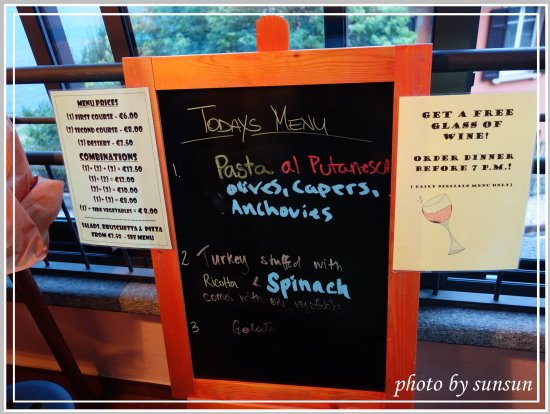 MENU PRICES
(1) FIRST COURSE - €6.00
(2) SECOND COURSE - €8.00
(3) DESSERT - €2.50
COMBINATIONS
(1) + (2) + (3) = €13.50
(1) + (2) = €12.00
(2) + (3) = €10.00
(1) + (3) = €8.00
(1) + SIDE VEGETABLES = € 8.00
SALADS, BRUSCHETTA & PIZZA
FROM €3.50 - SEE MENU
TODAYS MENU
1. Pasta al Putanesca
olives, Capers,
Anchovies
2 Turkey stuffed with
Ricotta & Spinach
comes with side vegetables
3 Gelati
GET A FREE
GLASS OF
WINE!
ORDER DINNER
BEFORE 7 P.M.!
( DAILY SPECIALS MENU ONLY)
photo by sunsun